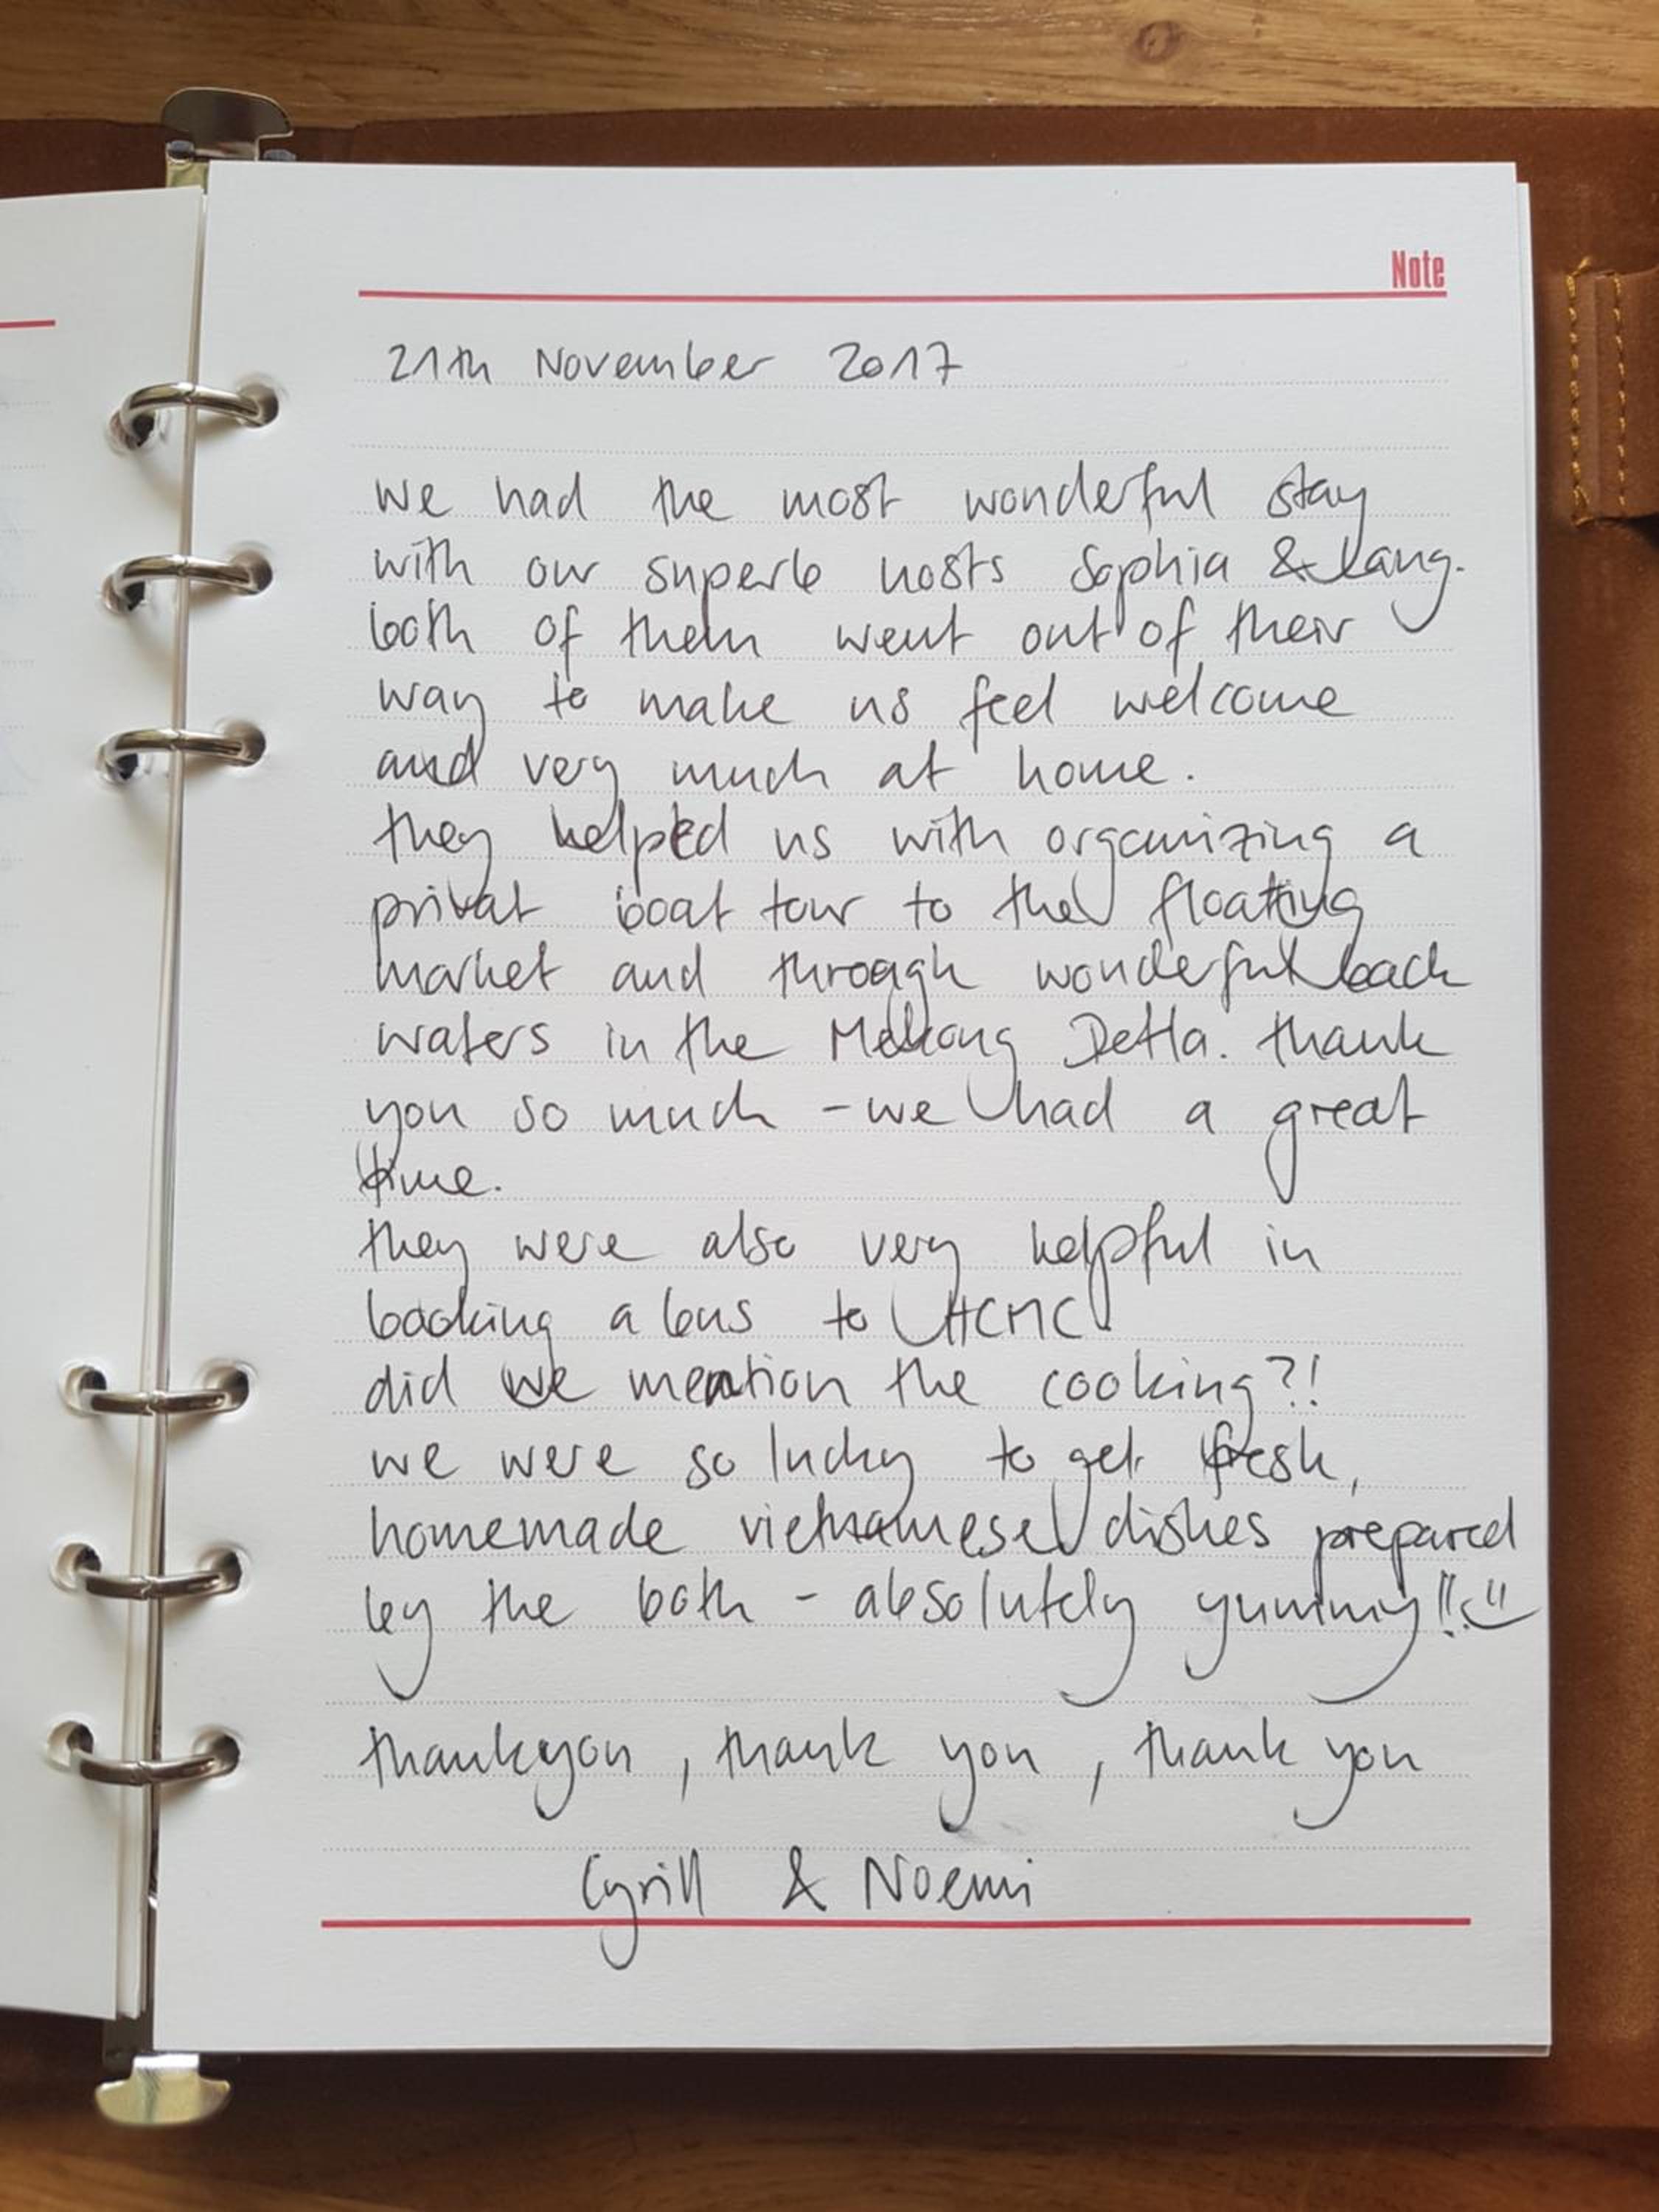 Note
21th November 2017
we had the most wonderful stay
with our superb hosts Sophia & Lang.
both of them went out of their
way to make us feel welcome
and very much at home.
they helped us with organizing a
privat boat tour to the floating
market and through wonderful back
waters in the Mekong Detla. thank
you so much - we had a great
time.
they were also very helpful in
booking a bus to HCMC
did we mention the cooking?!
we were so lucky to get fresh,
homemade vietnamese dishes prepared
by the both - absolutely yummy!! :)
thankyou, thank you, thank you
Cyrill & Noemi